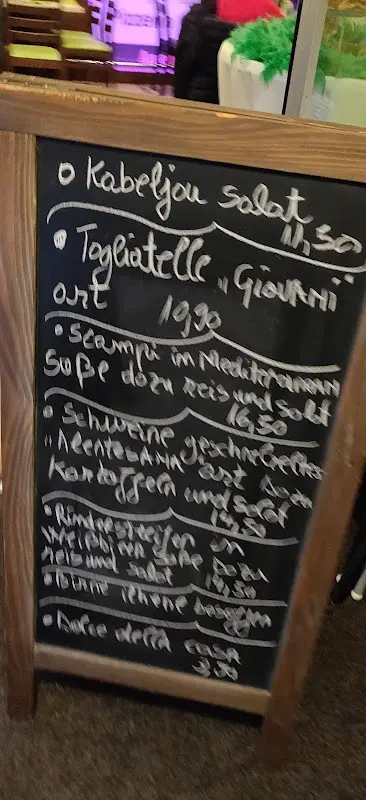 Kabeljou Salat
11,50
Tagliatelle „Giovanni"
art 10,90
Scampi in Mediterranen
Soße dazu reis und Salat
16,50
Schweine geschnetzeltes
art dazu
Kartoffeln und Salat
14,50
Rinderstreifen in
Soße dazu
reis und salat 14,50
Dolce della casa
3,50